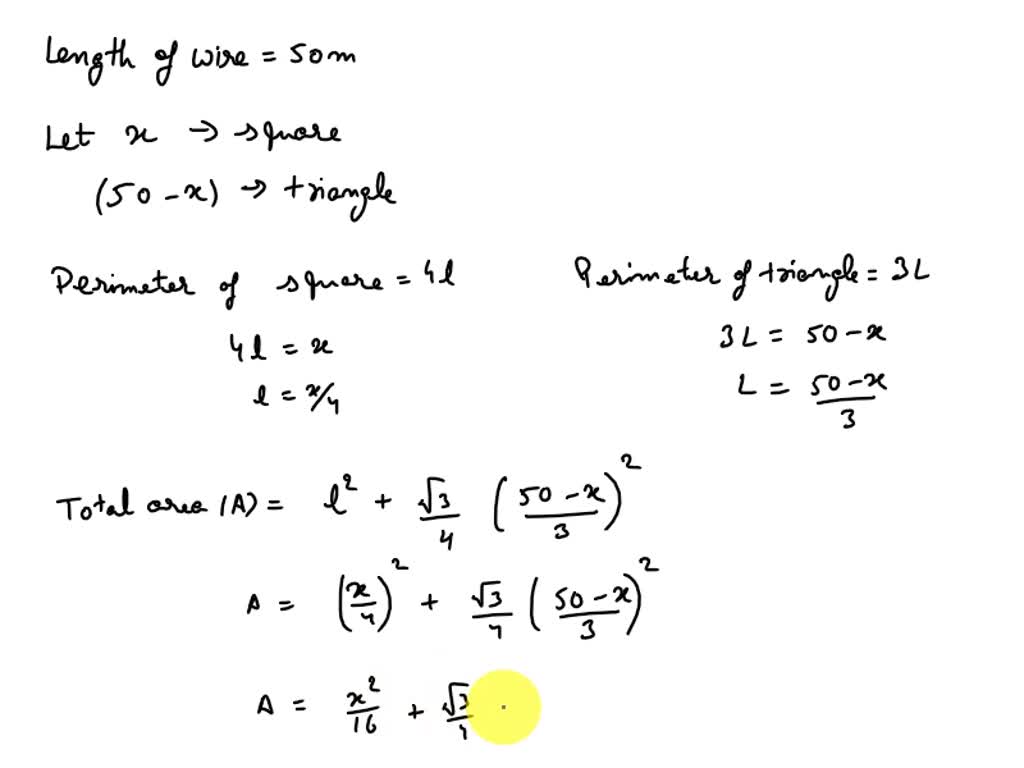 Length of wire = 50m
Let x → square
(50 - x) → triangle
Perimeter of square = 4l
4l = x
l = x/4
Perimeter of triangle = 3L
3L = 50 - x
L = (50 - x)/3
Total area (A) = l² + √3/4 ((50 - x)/3)²
A = (x/4)² + √3/4 ((50 - x)/3)²
A = x²/16 + √3/4